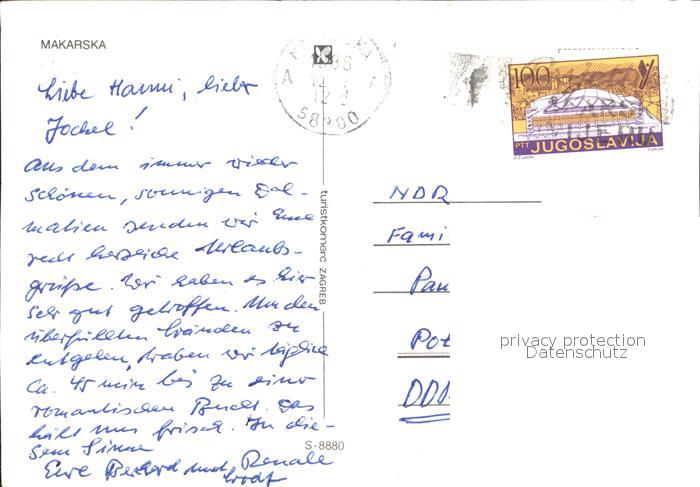 MAKARSKA
Liebe Hanni, lieber
Jochel!
Aus dem immer wieder
schönen, sonnigen Dal-
matien senden wir Eine
recht herzliche Urlaubs-
grüße. Wir haben es hier
sehr gut getroffen. Um den
überfüllten Stränden zu
entgehen, traben wir täglich
ca. 45 min bis zu einer
romantischen Bucht. Das
hält uns frisch. In die-
sem Sinne
Eure und Renate
turistkomerc ZAGREB
S-8880
1986
12
58300
100
PTT JUGOSLAVIJA
NDR
Fami
Pot
DDR
privacy protection
Datenschutz